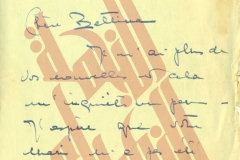 Chère Bettina
Je n'ai plus de
vos nouvelles et cela
m'inquiète un peu —
J'espère que votre
mari n'a pas été